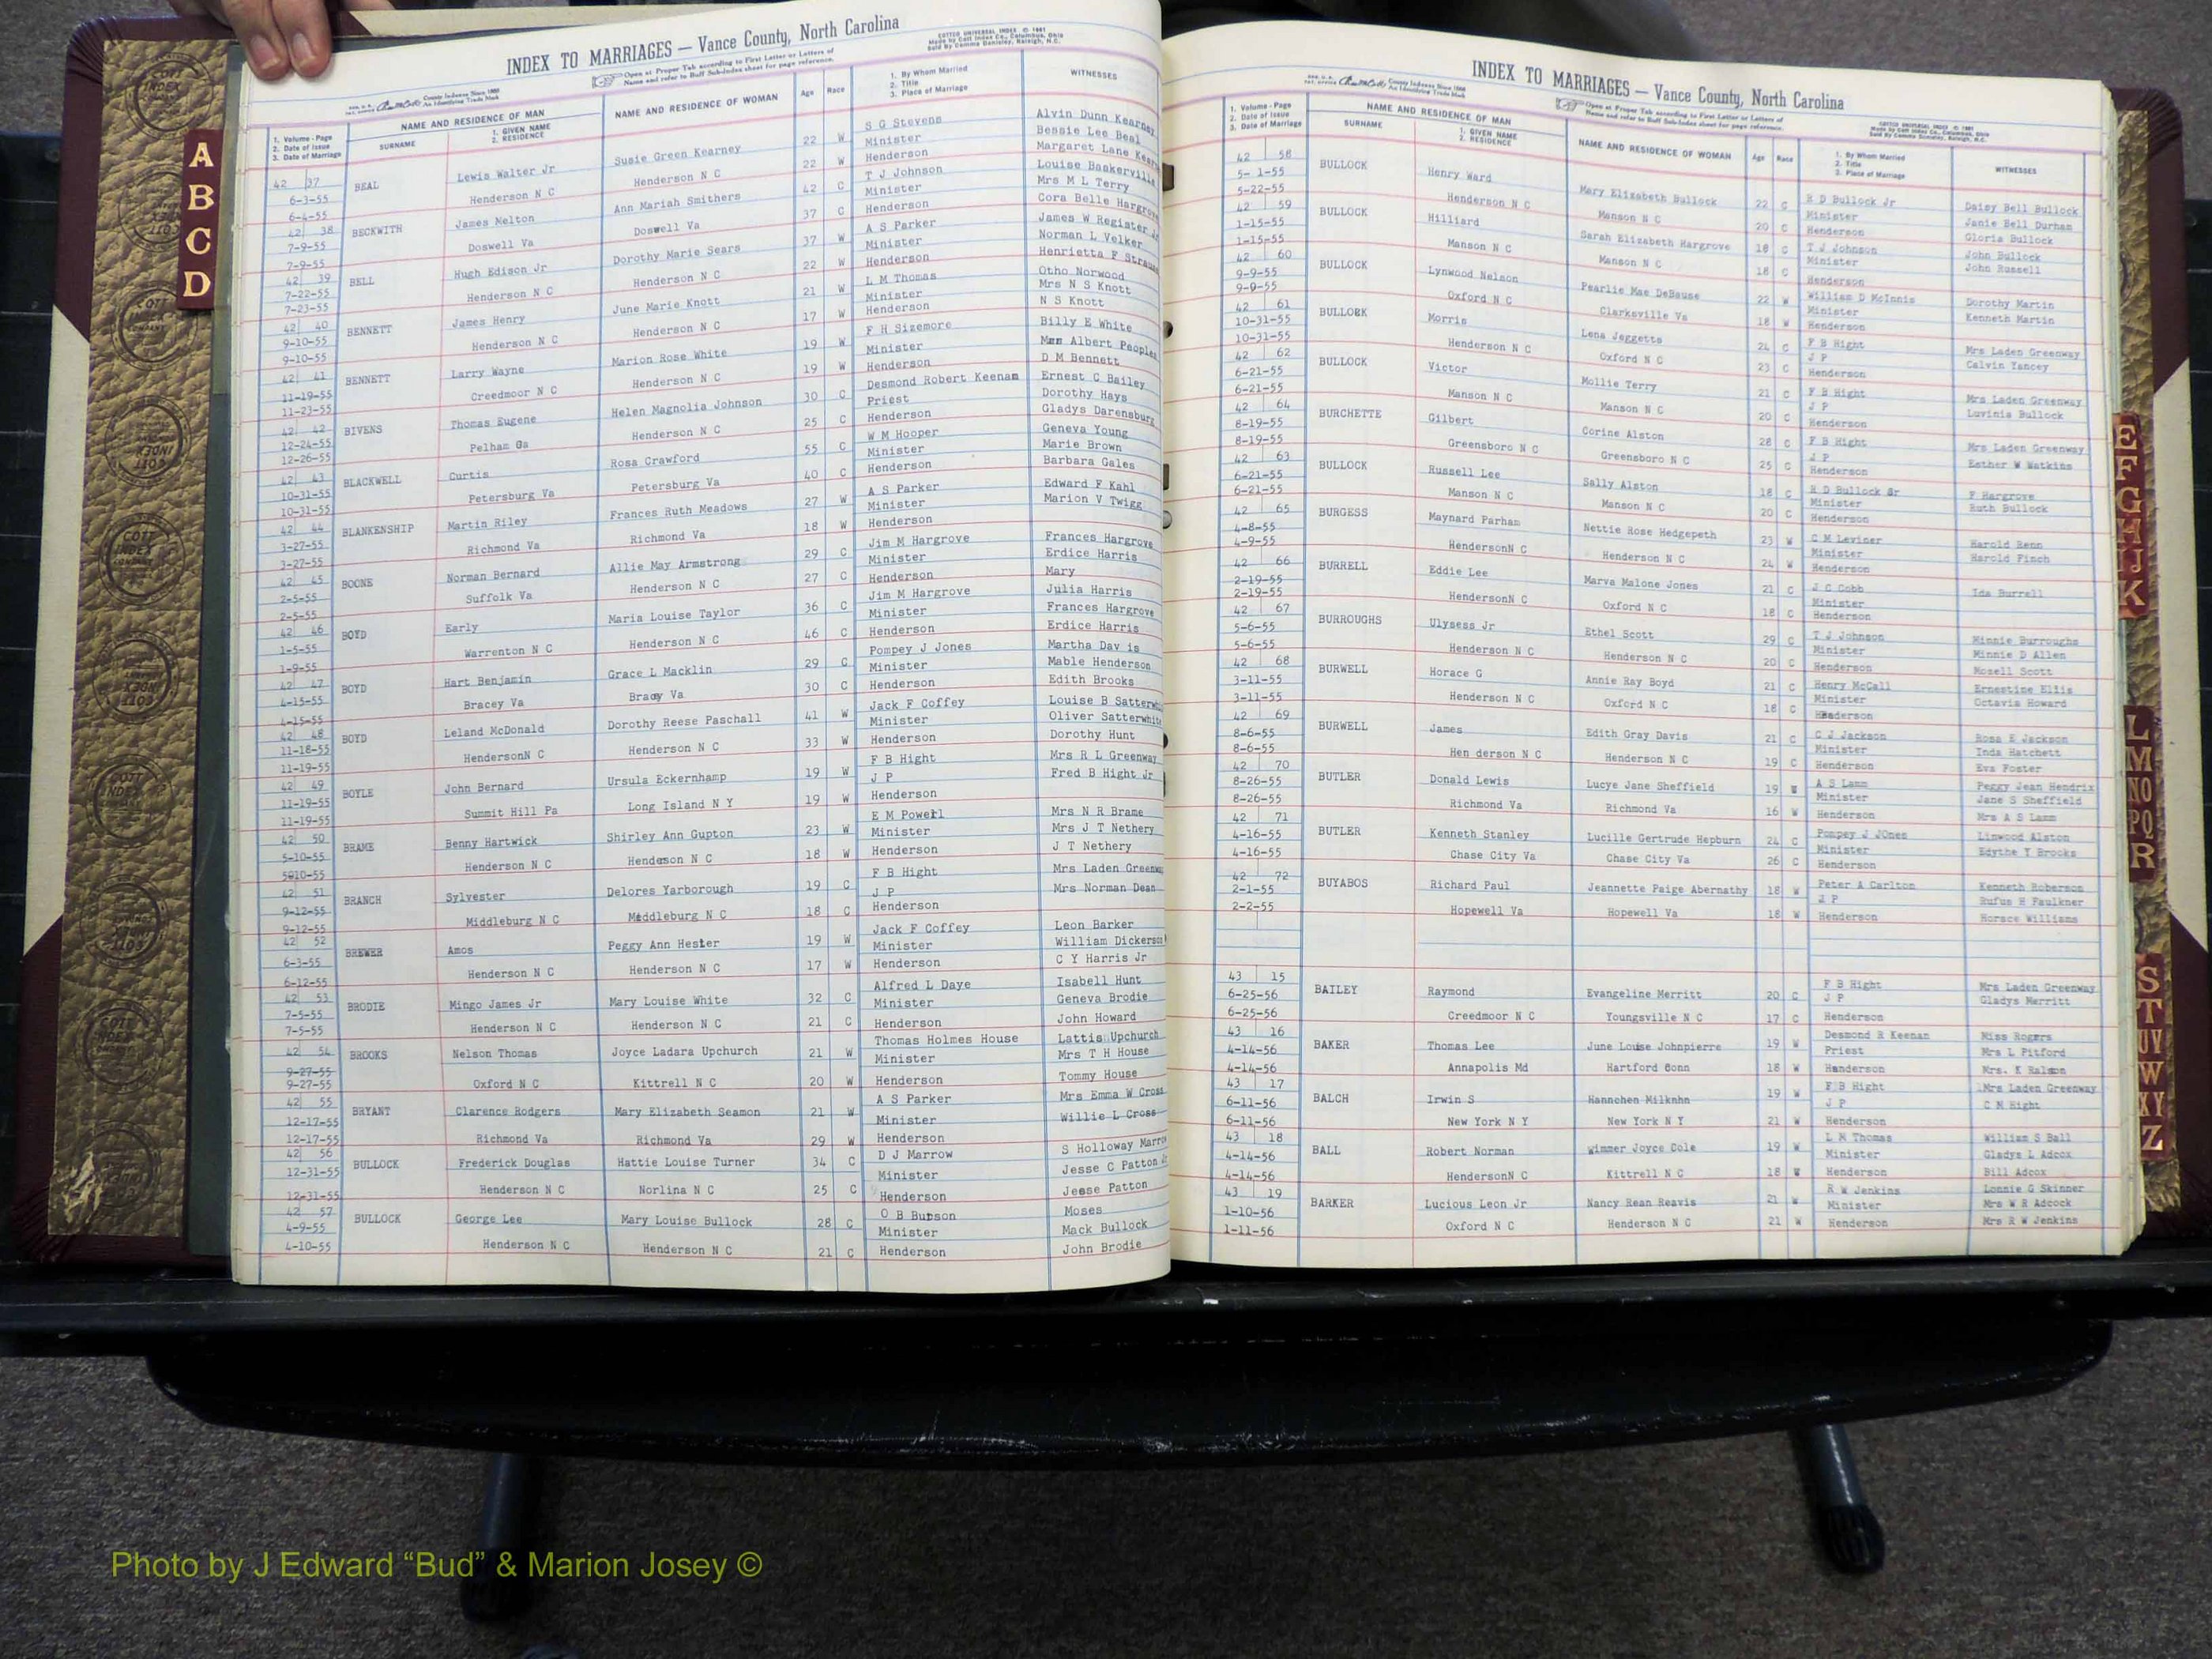 INDEX TO MARRIAGES — Vance County, North Carolina
COTT'S UNIVERSAL INDEX
Open at Proper Tab according to First Letter or Letters of
Name and refer to Buff Sub-Index sheet for page reference.
County Indexes Since 1888
An Identifying Trade Mark
1. Volume - Page
2. Date of Issue
3. Date of Marriage
NAME AND RESIDENCE OF MAN
SURNAME
1. GIVEN NAME
2. RESIDENCE
NAME AND RESIDENCE OF WOMAN
Age Race
1. By Whom Married
2. Title
3. Place of Marriage
WITNESSES
42 37 BEAL Lewis Walter Jr Susie Green Kearney 22 W S G Stevens Alvin Dunn Kearney
6-3-55 Henderson N C Henderson N C 22 W Minister Bessie Lee Beal
6-4-55 Henderson Margaret Lane
42 38 BECKWITH James Melton Ann Mariah Smithers 42 C T J Johnson Louise Baskerville
7-9-55 Doswell Va Doswell Va 37 C Minister Mrs M L Terry
7-9-55 Henderson Cora Belle Hargrove
42 39 BELL Hugh Edison Jr Dorothy Marie Sears 37 W A S Parker James W Register Jr
7-22-55 Henderson N C Henderson N C 22 W Minister Norman L Velker
7-23-55 Henderson Henrietta F
42 40 BENNETT James Henry June Marie Knott 21 W L M Thomas Otho Norwood
9-10-55 Henderson N C Henderson N C 17 W Minister Mrs N S Knott
9-10-55 Henderson N S Knott
42 41 BENNETT Larry Wayne Marion Rose White 19 W F H Sizemore Billy E White
11-19-55 Creedmoor N C Henderson N C 19 W Minister Albert Peoples
11-23-55 Henderson D M Bennett
42 42 BIVENS Thomas Eugene Helen Magnolia Johnson 30 C Desmond Robert Keenam Ernest C Bailey
12-24-55 Pelham Ga Henderson N C 25 C Priest Dorothy Hays
12-26-55 Henderson Gladys Darensburg
42 43 BLACKWELL Curtis Rosa Crawford 55 C W M Hooper Geneva Young
10-31-55 Petersburg Va Petersburg Va 40 C Minister Marie Brown
10-31-55 Henderson Barbara Gales
42 44 BLANKENSHIP Martin Riley Frances Ruth Meadows 27 W A S Parker Edward F Kahl
3-27-55 Richmond Va Richmond Va 18 W Minister Marion V Twigg
3-27-55 Henderson
42 45 BOONE Norman Bernard Allie May Armstrong 29 C Jim M Hargrove Frances Hargrove
2-5-55 Suffolk Va Henderson N C 27 C Minister Erdice Harris
2-5-55 Henderson Mary
42 46 BOYD Early Maria Louise Taylor 36 C Jim M Hargrove Julia Harris
1-5-55 Warrenton N C Henderson N C 46 C Minister Frances Hargrove
1-9-55 Henderson Erdice Harris
42 47 BOYD Hart Benjamin Grace L Macklin 29 C Pompey J Jones Martha Dav is
4-15-55 Bracey Va Bracey Va 30 C Minister Mable Henderson
4-15-55 Henderson Edith Brooks
42 48 BOYD Leland McDonald Dorothy Reese Paschall 41 W Jack F Coffey Louise B
11-18-55 HendersonN C Henderson N C 33 W Minister Oliver Satterwhite
11-19-55 Henderson Dorothy Hunt
42 49 BOYLE John Bernard Ursula Eckernhamp 19 W F B Hight Mrs R L Greenway
11-19-55 Summit Hill Pa Long Island N Y 19 W J P Fred B Hight Jr
11-19-55 Henderson
42 50 BRAME Benny Hartwick Shirley Ann Gupton 23 W E M Powell Mrs N R Brame
5-10-55 Henderson N C Henderson N C 18 W Minister Mrs J T Nethery
5010-55 Henderson J T Nethery
42 51 BRANCH Sylvester Delores Yarborough 19 C F B Hight Mrs Laden Greenway
9-12-55 Middleburg N C Middleburg N C 18 C J P Mrs Norman Dean
9-12-55 Henderson
42 52 BREWER Amos Peggy Ann Hester 19 W Jack F Coffey Leon Barker
6-3-55 Henderson N C Henderson N C 17 W Minister William Dickerson
6-12-55 Henderson C Y Harris Jr
42 53 BRODIE Mingo James Jr Mary Louise White 32 C Alfred L Daye Isabell Hunt
7-5-55 Henderson N C Henderson N C 21 C Minister Geneva Brodie
7-5-55 Henderson John Howard
42 54 BROOKS Nelson Thomas Joyce Ladara Upchurch 21 W Thomas Holmes House Lattis Upchurch
9-27-55 Oxford N C Kittrell N C 20 W Minister Mrs T H House
9-27-55 Henderson Tommy House
42 55 BRYANT Clarence Rodgers Mary Elizabeth Seamon 21 W A S Parker Mrs Emma W Cross
12-17-55 Richmond Va Richmond Va 29 W Minister Willie L Cross
12-17-55 Henderson
42 56 BULLOCK Frederick Douglas Hattie Louise Turner 34 C D J Marrow S Holloway Marrow
12-31-55 Henderson N C Norlina N C 25 C Minister Jesse C Patton
12-31-55 Henderson Jesse Patton
42 57 BULLOCK George Lee Mary Louise Bullock 28 C O B Burson Moses
4-9-55 Henderson N C Henderson N C 21 C Minister Mack Bullock
4-10-55 Henderson John Brodie
A
B
C
D
INDEX TO MARRIAGES — Vance County, North Carolina
County Indexes Since 1888
An Identifying Trade Mark
Open at Proper Tab according to First Letter or Letters of
Name and refer to Buff Sub-Index sheet for page reference.
1. Volume - Page
2. Date of Issue
3. Date of Marriage
NAME AND RESIDENCE OF MAN
SURNAME
1. GIVEN NAME
2. RESIDENCE
NAME AND RESIDENCE OF WOMAN
Age Race
1. By Whom Married
2. Title
3. Place of Marriage
WITNESSES
42 58 BULLOCK Henry Ward Mary Elizabeth Bullock 22 C R D Bullock Jr Daisy Bell Bullock
5- 1-55 Henderson N C Manson N C 20 C Minister Janie Bell Durham
5-22-55 Henderson Gloria Bullock
42 59 BULLOCK Hilliard Sarah Elizabeth Hargrove 18 C T J Johnson John Bullock
1-15-55 Manson N C Manson N C 18 C Minister John Russell
1-15-55 Henderson
42 60 BULLOCK Lynwood Nelson Pearlie Mae DeBause 22 W William D McInnis Dorothy Martin
9-9-55 Oxford N C Clarksville Va 18 W Minister Kenneth Martin
9-9-55 Henderson
42 61 BULLOCK Morris Lena Jeggetts 24 C F B Hight Mrs Laden Greenway
10-31-55 Henderson N C Oxford N C 23 C J P Calvin Yancey
10-31-55 Henderson
42 62 BULLOCK Victor Mollie Terry 21 C F B Hight Mrs Laden Greenway
6-21-55 Manson N C Manson N C 20 C J P Luvinia Bullock
6-21-55 Henderson
42 64 BURCHETTE Gilbert Corine Alston 28 C F B Hight Mrs Laden Greenway
8-19-55 Greensboro N C Greensboro N C 25 C J P Esther W Watkins
8-19-55 Henderson
42 63 BULLOCK Russell Lee Sally Alston 18 C R D Bullock Sr F Hargrove
6-21-55 Manson N C Manson N C 20 C Minister Ruth Bullock
6-21-55 Henderson
42 65 BURGESS Maynard Parham Nettie Rose Hedgepeth 23 W C M Leviner Harold Renn
4-8-55 HendersonN C Henderson N C 24 W Minister Harold Finch
4-9-55 Henderson
42 66 BURRELL Eddie Lee Marva Malone Jones 21 C J C Cobb Ida Burrell
2-19-55 HendersonN C Oxford N C 18 C Minister
2-19-55 Henderson
42 67 BURROUGHS Ulysess Jr Ethel Scott 29 C T J Johnson Minnie Burroughs
5-6-55 Henderson N C Henderson N C 20 C Minister Minnie D Allen
5-6-55 Henderson Mozell Scott
42 68 BURWELL Horace G Annie Ray Boyd 21 C Henry McCall Ernestine Ellis
3-11-55 Henderson N C Oxford N C 18 C Minister Octavia Howard
3-11-55 Henderson
42 69 BURWELL James Edith Gray Davis 21 C C J Jackson Rosa E Jackson
8-6-55 Hen derson N C Henderson N C 19 C Minister Inda Hatchett
8-6-55 Henderson Eva Foster
42 70 BUTLER Donald Lewis Lucye Jane Sheffield 19 W A S Lamm Peggy Jean Hendrix
8-26-55 Richmond Va Richmond Va 16 W Minister Jane S Sheffield
8-26-55 Henderson Mrs A S Lamm
42 71 BUTLER Kenneth Stanley Lucille Gertrude Hepburn 24 C Pompey J JOnes Linwood Alston
4-16-55 Chase City Va Chase City Va 26 C Minister Edythe Y Brooks
4-16-55 Henderson
42 72 BUYABOS Richard Paul Jeannette Paige Abernathy 18 W Peter A Carlton Kenneth Roberson
2-1-55 Hopewell Va Hopewell Va 18 W J P Rufus H Faulkner
2-2-55 Henderson Horace Williams
43 15 BAILEY Raymond Evangeline Merritt 20 C F B Hight Mrs Laden Greenway
6-25-56 Creedmoor N C Youngsville N C 17 C J P Gladys Merritt
6-25-56 Henderson
43 16 BAKER Thomas Lee June Louise Johnpierre 19 W Desmond R Keenan Miss Rogers
4-14-56 Annapolis Md Hartford Conn 18 W Priest Mrs L Pitford
4-14-56 Henderson Mrs. K Ralston
43 17 BALCH Irwin S Hannchen Milknhn 19 W F B Hight Mrs Laden Greenway
6-11-56 New York N Y New York N Y 21 W J P C M Hight
6-11-56 Henderson
43 18 BALL Robert Norman Wimmer Joyce Cole 19 W L M Thomas William S Ball
4-14-56 HendersonN C Kittrell N C 18 W Minister Gladys L Adcox
4-14-56 Henderson Bill Adcox
43 19 BARKER Lucious Leon Jr Nancy Rean Reavis 21 W R W Jenkins Lonnie G Skinner
1-10-56 Oxford N C Henderson N C 21 W Minister Mrs W R Adcock
1-11-56 Henderson Mrs R W Jenkins
E
F
G
H
J
K
L
M
NO
PQ
R
S
T
UV
W
XY
Z
Photo by J Edward “Bud” & Marion Josey ©